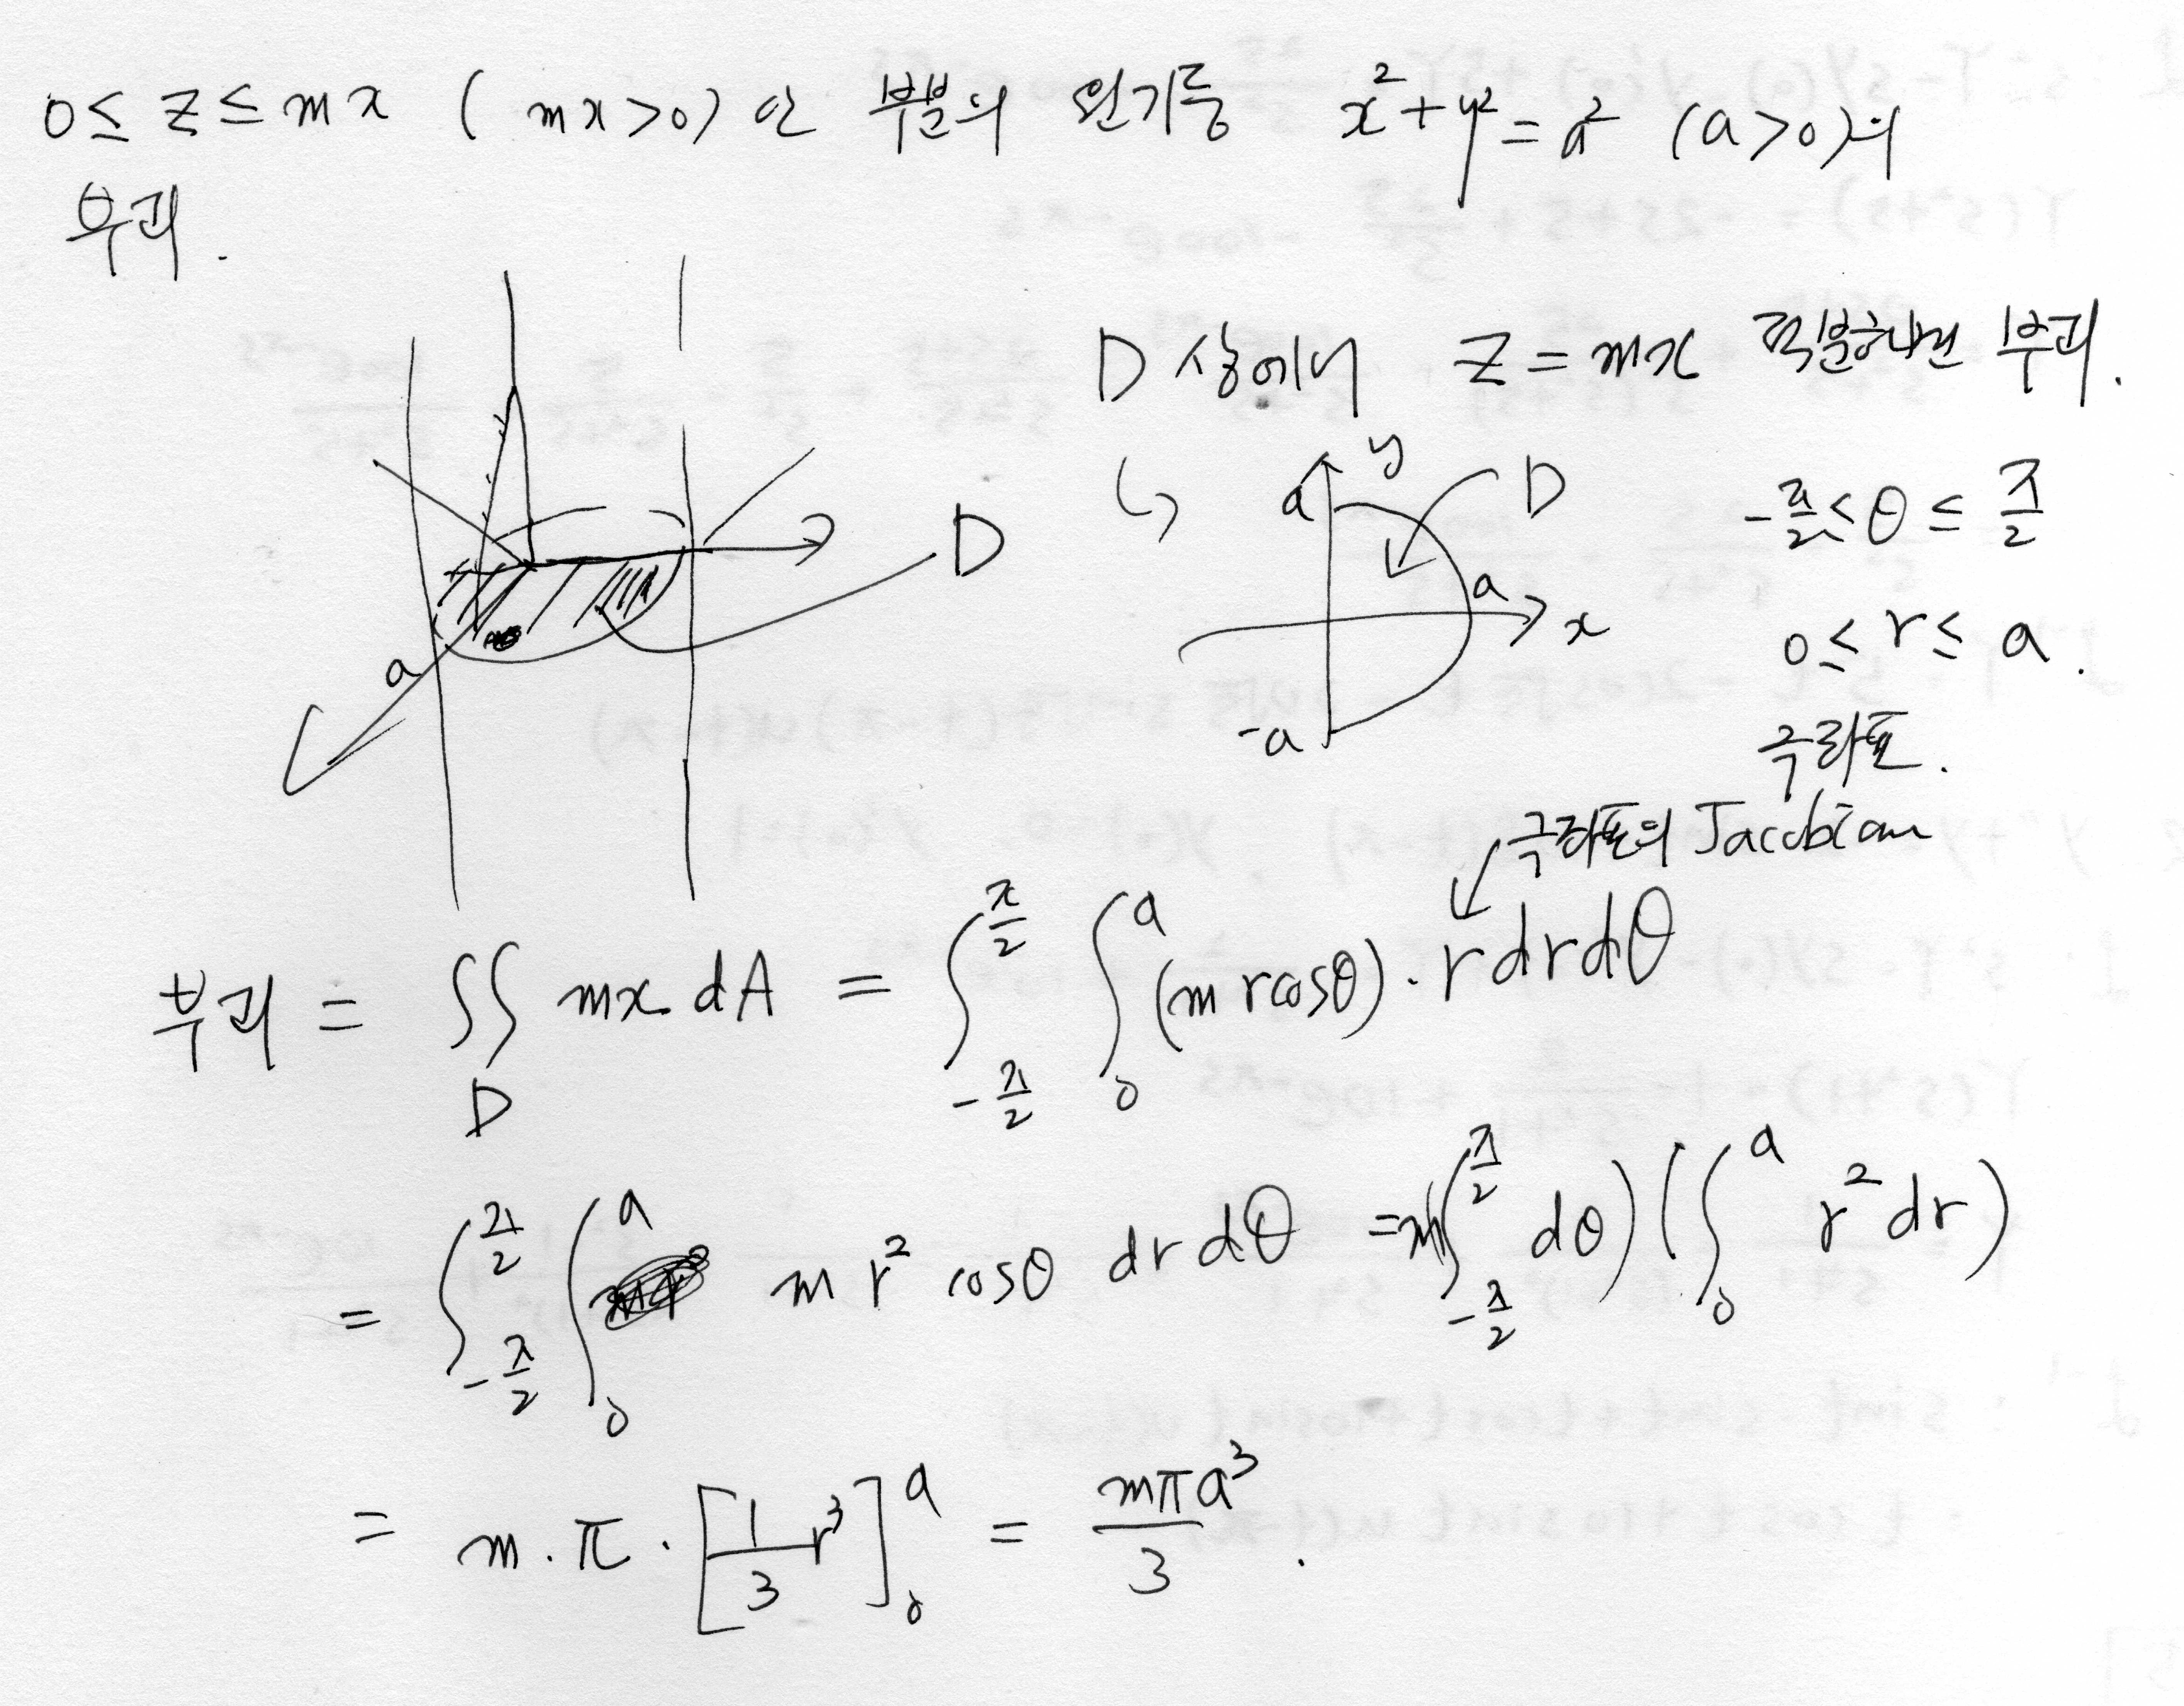 0 ≤ z ≤ mx ( mx > 0) 인 부분의 원기둥 x² + y² = a² (a > 0)의
부피.
D 상에서 z = mx 적분하면 부피.
y
a D
-π/2 ≤ θ ≤ π/2
D
a
x
0 ≤ r ≤ a.
a
-a
극좌표.
극좌표의 Jacobian
부피 = ∬_D mx dA = ∫_{-π/2}^{π/2} ∫_0^a (m r cosθ) · r dr dθ
= ∫_{-π/2}^{π/2} ∫_0^a m r² cosθ dr dθ = m(∫_{-π/2}^{π/2} dθ)(∫_0^a r² dr)
= m · π · [1/3 r³]_0^a = mπa³/3 .